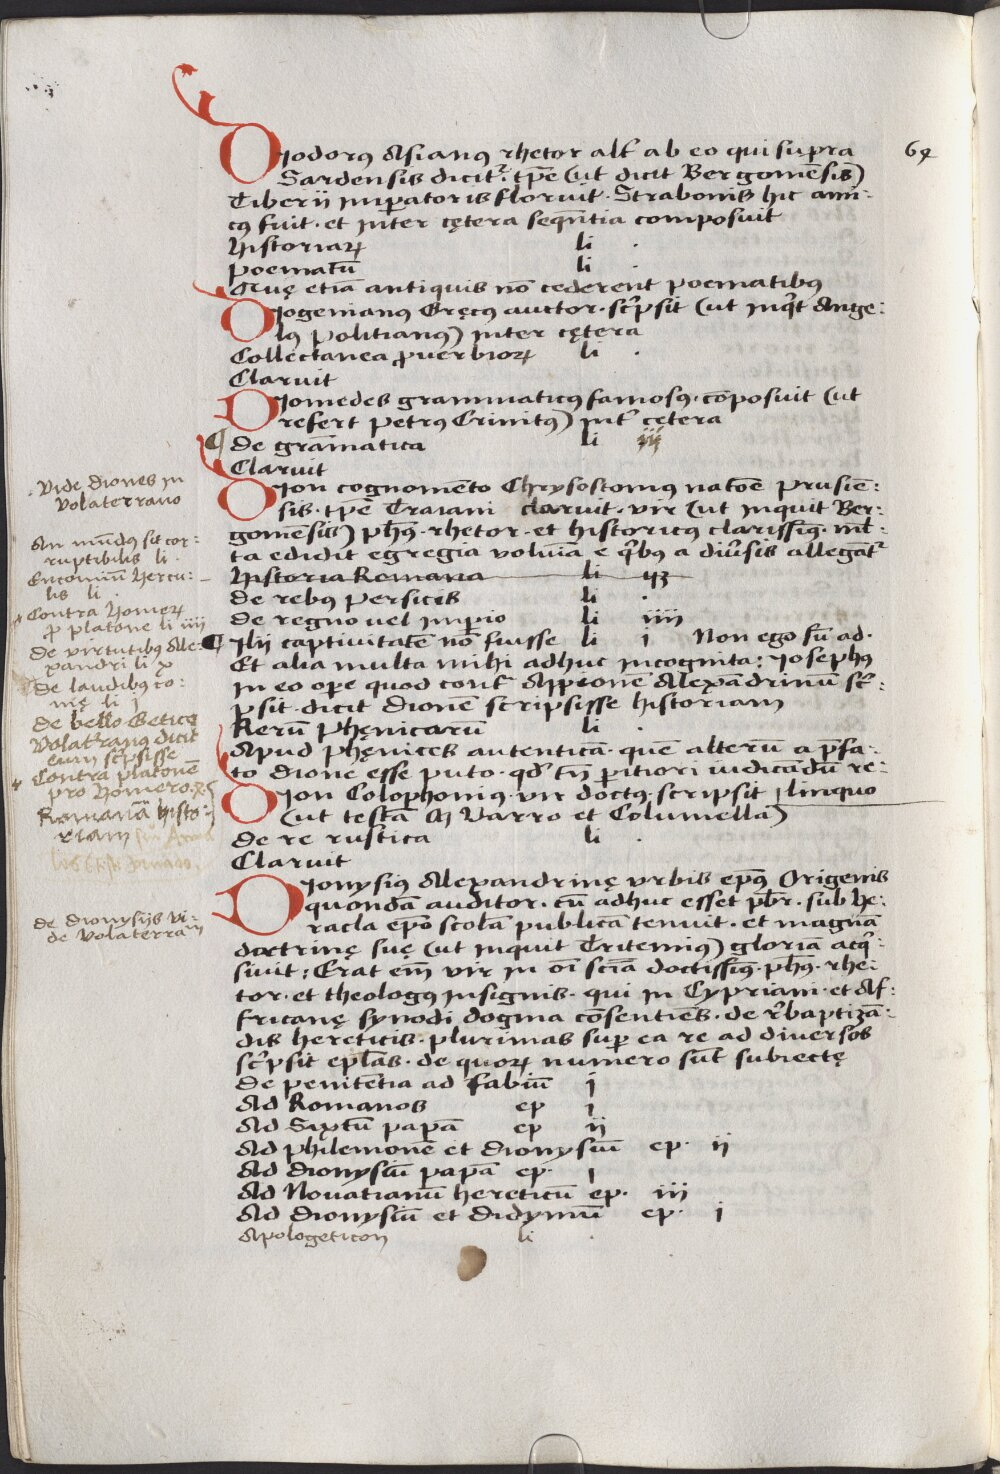 64
Diodorꝰ Asianꝰ rhetor alt̄ ab eo qui supra
Sardensis dicit᷑. tp̄e (ut dicit Bergomēsis)
Tiberij imperatoris floruit. Strabonis hic ami-
cꝰ fuit. et inter cętera seqn̄tia composuit
Historiaꝝ li .
Poematū li .
Quę etiā antiquis nō cederent poematibus
Diogenianꝰ Gręcꝰ auctor. sc̄psit (ut inqt Ange:
lꝰ Politianꝰ) inter cętera
Collectanea ꝓverbioꝝ li .
Claruit
Diomedes grammaticꝰ famosꝰ. cōposuit (ut
refert Petrus Crinitꝰ) int̄ cętera
¶ De grāmatica li iij
Claruit
Dion cognomēto Chrysostomꝰ natōe Prusiē:
sis. tp̄e Traiani claruit. vir (ut inquit Ber-
gomēsis) ph̄ꝰ. rhetor. et historicꝰ clarissīꝰ. ml̄-
ta edidit egregia volūia e qbus a diūsis allegāt᷑
Historia Romana li
De rebꝰ Persicis li .
De regno vel imperio li iiij
¶ Ilij captivitatē nō fuisse li i Non ego fū ad.
Et alia multa mihi adhuc incognita: Iosephꝰ
in eo ope quod cont̄ Appionē Alexādrinū sc̄-
psit. dicit Dionē scripsisse historiam
Rerū Phęnicarū li .
Apud Phęnices autenticā. quē alterū a p̄fa-
to Dione esse puto. qd tn̄ pitiori iudicādū re-
linquo
Dion Colophonius. vir doctꝰ. scripsit
(ut testā M Varro et Columella)
De re rustica li .
Claruit
Dionysiꝰ Alexandrinę vrbis ep̄ꝰ Origenis
quondā auditor. cū adhuc esset pb̄r. sub He-
racla ep̄o scolā publicā tenuit. et magnā
doctrinę suę (ut inquit Tritemiꝰ) gloriā acq-
sivit: Erat em̄ vir in oī sciā doctissīꝰ. ph̄ꝰ. rhe-
tor. et theologꝰ insignis. qui in Cypriani. et Af-
fricanę synodi dogma cōsentiēs. de rbaptizā-
dis hereticis. plurimas sup ea re ad diversos
sc̄psit ep̄las. de quoꝝ numero sūt subiectę
De penitētia ad Fabiū j
Ad Romanos ep i
Ad Sixtū papā ep ij
Ad Philemonē et Dionysiū ep. ij
Ad Dionysiū papā ep. i
Ad Novatianū hereticū ep. iij
Ad Dionysiū et Didymū ep. i
Apologeticon li .
Vide Diones in
Volaterrano
An mūdꝰ sit cor-
ruptibilis li .
Encomiū Hercu-
lis li .
Contra Homeꝝ
ꝓ Platone li iiij
De virtutibꝰ Ale-
xandri li x
De laudibꝰ co-
mę li j
De bello Getico
Volat̄ranꝰ dicit
eum sc̄psisse
Contra Platonē
pro Homero.
Romanā histo-
riam
De Dionysijs vi-
de Volaterran̄